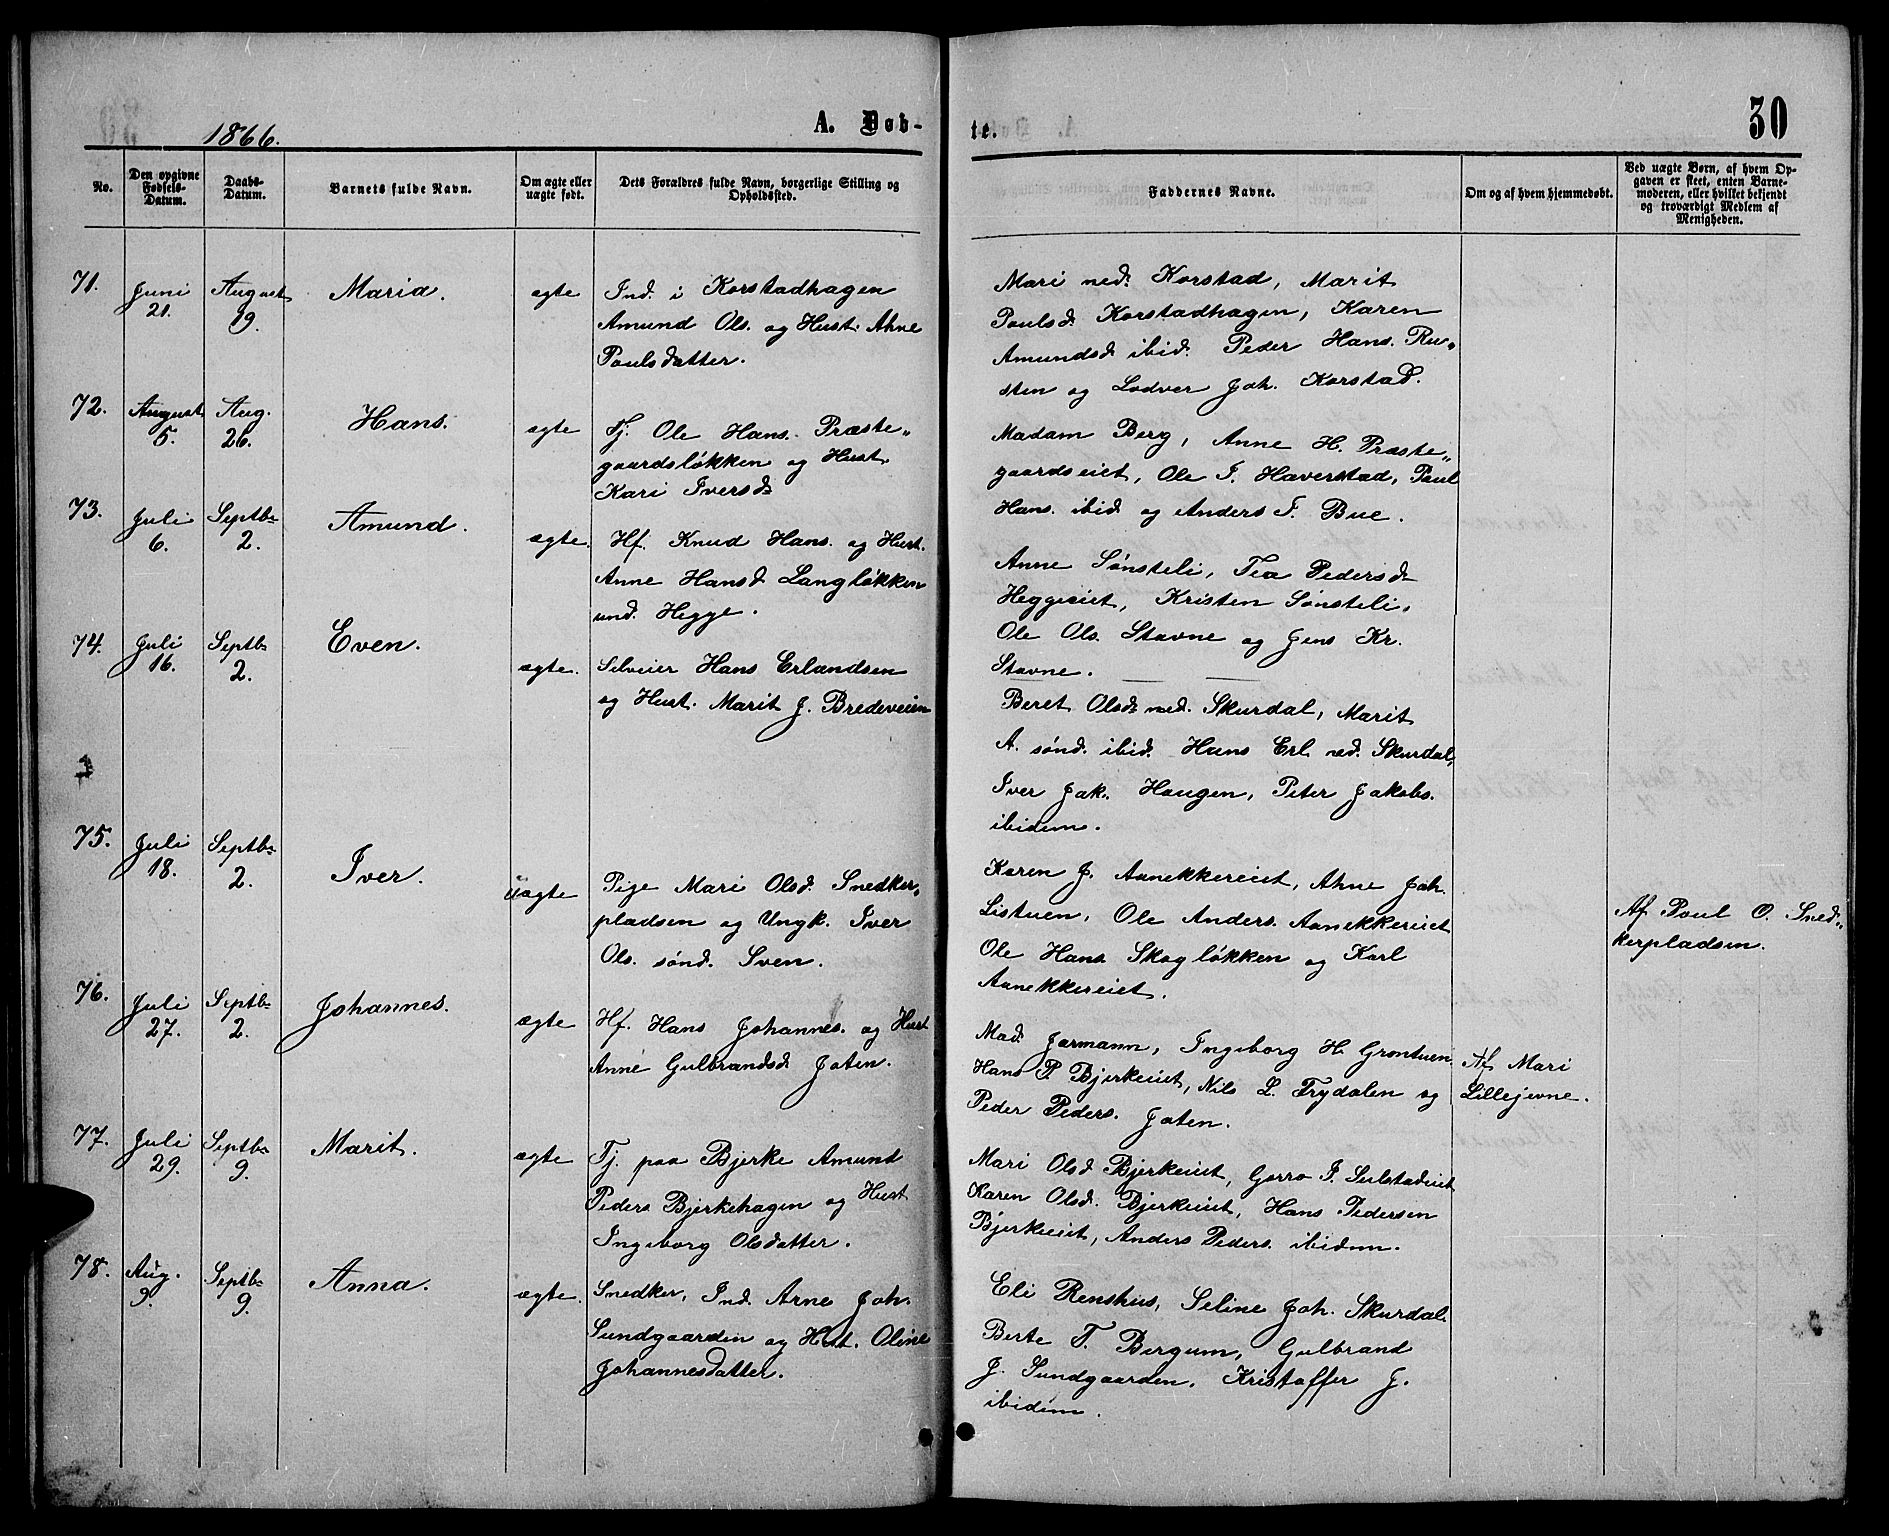 1866.
A. Døb-
te.
30
No.
Den opgivne Fødsels-Datum.
Daabs-Datum.
Barnets fulde Navn.
Om ægte eller uægte født.
Dets Forældres fulde Navn, borgerlige Stilling og Opholdssted.
Faddernes Navne.
Om og af hvem hjemmedøbt.
Ved uægte Børn, af hvem Op-
gaven er skeet, enten Barne-
moderen, eller hvilket bekjendt
og troværdigt Medlem af
Menigheden.
71.
Juni
21.
August
19.
Maria.
ægte
Ind. i Korstadhagen
Amund Ols. og Hust. Ahne
Poulsdatter.
Mari ned. Korstad, Marit
Poulsd. Korstadhagen, Karen
Amundsd ibid. Peder Hans. Ru„
sten og Lodver Joh. Korstad.
72.
August
5.
Aug.
26.
Hans.
ægte
Tj. Ole Hans. Præste„
gaardsløkken og Hust.
Kari Iversd.
Madam Berg, Anne H. Præste„
gaardseiet, Ole I. Haverstad, Paul
Hans. ibid og Anders T. Bue.
73.
Juli
6.
Septb.
2.
Amund.
ægte.
Hf. Knud Hans. og Hust.
Anne Hansd Langløkken
und. Hegge.
Anne Sønsteli, Tea Pedersd.
Heggeeiet, Kristen Sønsteli,
Ole Ols. Stavne og Jens Kr.
Stavne.
74.
Juli
16.
Septb.
2.
Even.
ægte.
Selveier Hans Erlandsen
og Hust. Marit J. Bredeveien
Beret Olsd. ned. Skurdal, Marit
A. sønd. ibid. Hans Erl. ned. Skurdal,
Iver Jak. Haugen, Peter Jakobs.
ibidem.
75.
Juli
18.
Septb.
2.
Iver.
uægte
Pige Mari Olsd. Snedker„
pladsen og Ungk. Iver
Ols. sønd. Sven.
Karen J. Aanekkereiet, Ahne Joh.
Listuen, Ole Anders. Aanekkereiet
Ole Hans Skogløkken og Karl
Aanekkereiet.
Af Poul O. Sned„
kerpladsen.
76.
Juli
27.
Septb.
2.
Johannes.
ægte
Hf. Hans Johannes. og Hust
Anne Gulbrandsd. Joten.
Mad. Jormann, Ingeborg H. Grøntuen
Hans P. Bjerkeeiet, Nils L. Trydalen og
Peder Peders. Joten.
Af Mari
Lillejevne.
77.
Juli
29.
Septb.
9.
Marit.
ægte
Tj. paa Bjerke Amund
Peders Bjerkehagen og Hust
Ingeborg Olsdatter.
Mari Olsd Bjerkeeiet, Gorro I. Seilstadeiet
Karen Olsd. Bjerkeeiet, Hans Pedersen
Bjerkeeiet, Anders Peders. ibidem.
78.
Aug.
9.
Septb.
9.
Anna.
ægte.
Snedker, Ind. Arne Joh.
Sundgaarden og Hust. Oline
Johannesdatter.
Eli Renshus, Seline Joh. Skurdal.
Berte T. Bergum, Gulbrand
J. Sundgaarden, Kristoffer J.
ibidem.